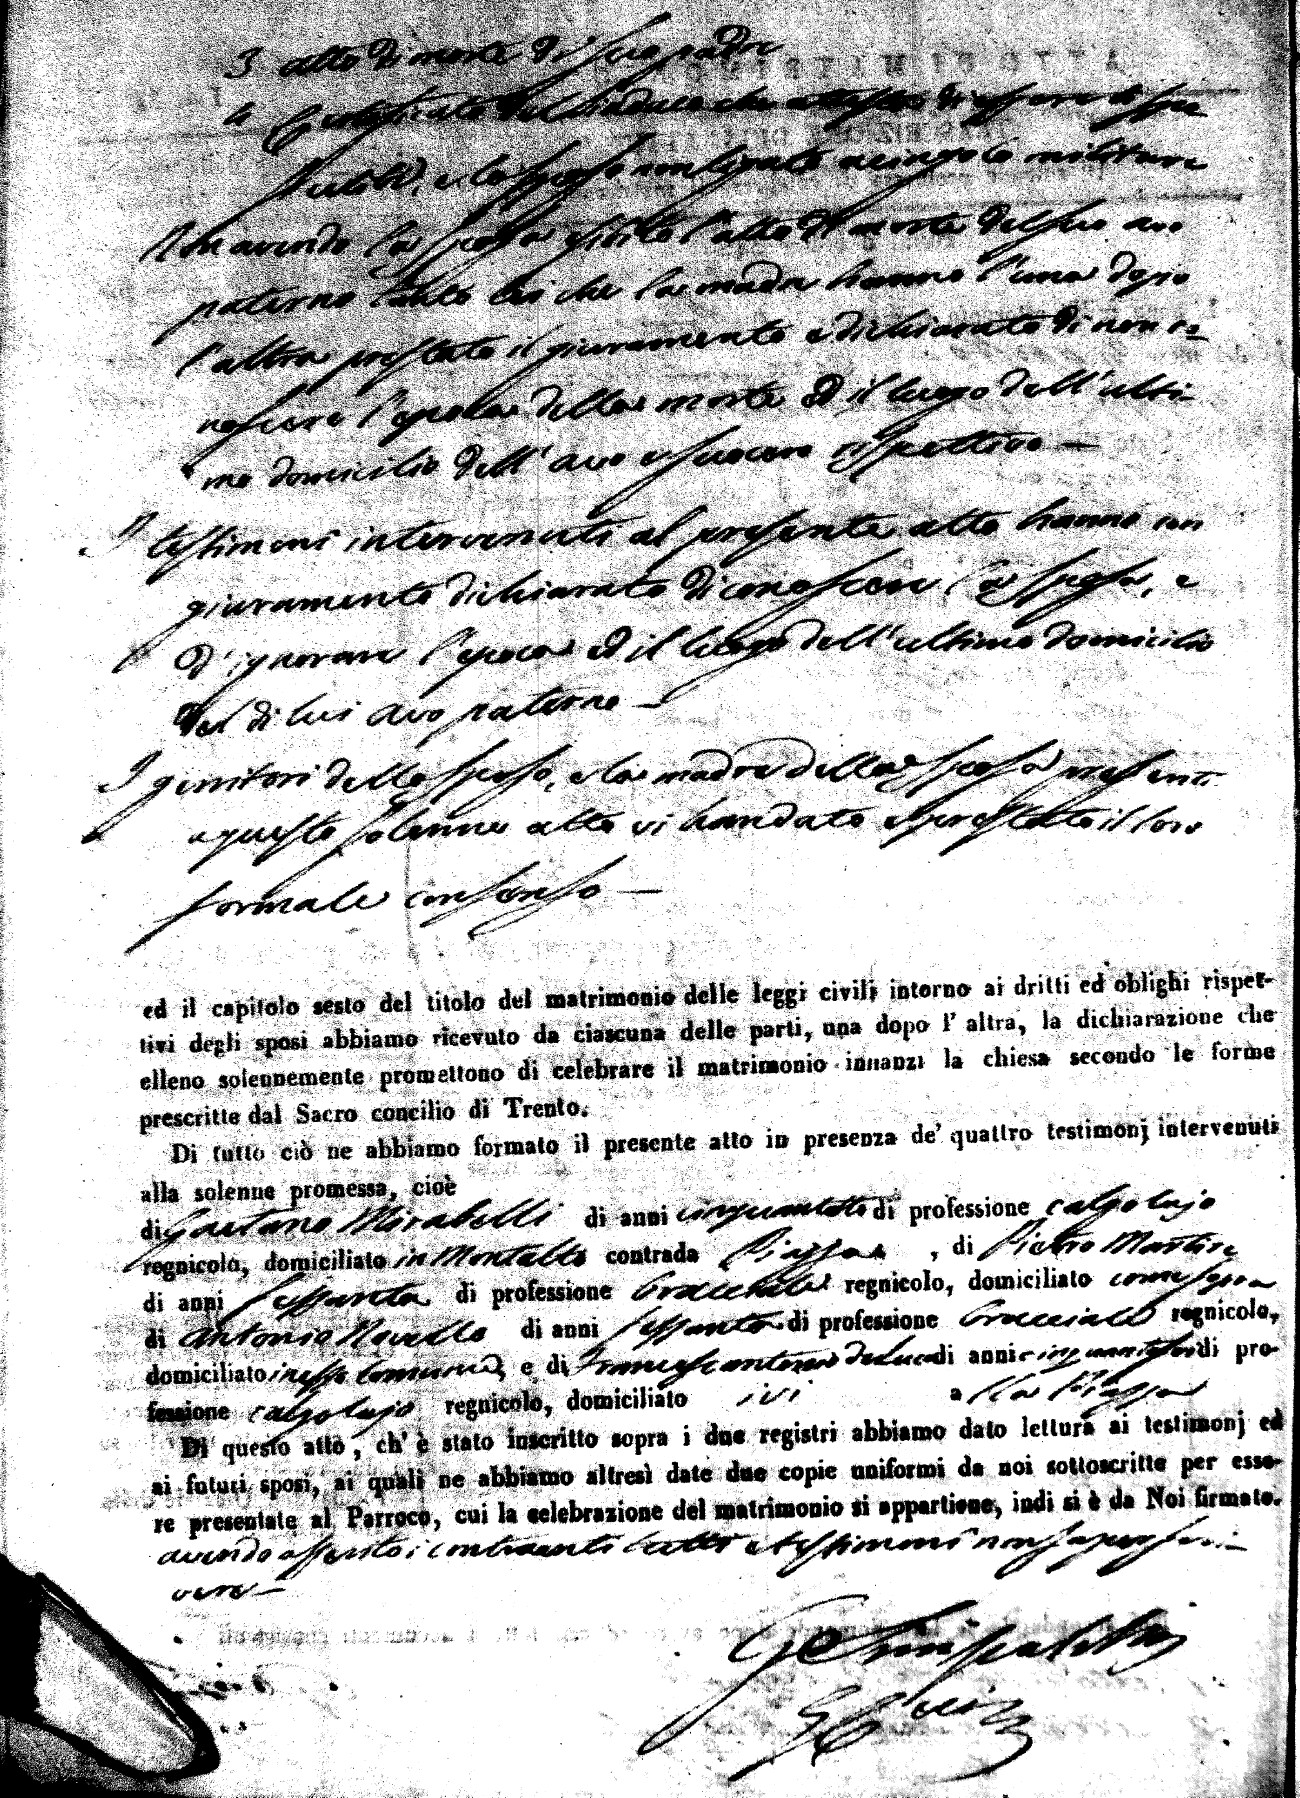 3 atto di morte di suo padre
4 Certificato del Sindaco che attesta di essere le spose
nubili, e lo sposo non legato a cingolo militare
Non avendo la sposa esibito l'atto di morte del suo avo
paterno tanto lei che la madre hanno l'una dopo
l'altra prestato il giuramento e dichiarato di non co=
noscere l'epoca della morte ed il luogo dell'ulti-
mo domicilio dell'avo e suocero rispettivo —
I testimoni intervenuti al presente atto hanno con
giuramento dichiarato di conoscere la sposa, e
d'ignorare l'epoca ed il luogo dell'ultimo domicilio
del di lui avo paterno —
I genitori dello sposo, e la madre della sposa presenti
a questo solenne atto vi han dato e prestato il loro
formale consenso —
ed il capitolo sesto del titolo del matrimonio delle leggi civili intorno ai dritti ed oblighi rispet-
tivi degli sposi abbiamo ricevuto da ciascuna delle parti, una dopo l'altra, la dichiarazione che
elleno solennemente promettono di celebrare il matrimonio innanzi la chiesa secondo le forme
prescritte dal Sacro concilio di Trento.
Di tutto ciò ne abbiamo formato il presente atto in presenza de' quattro testimonj intervenuti
alla solenne promessa, cioè
di Gaetano Mirabelli di anni cinquantotto di professione calzolajo
regnicolo, domiciliato in Montalto contrada Piazza , di Pietro Martire
di anni sessanta di professione bracciale regnicolo, domiciliato come sopra
di Antonio Novello di anni sessanta di professione bracciale regnicolo,
domiciliato in esso comune, e di Francescantonio de Luca di anni cinquantasei di pro-
fessione calzolajo regnicolo, domiciliato ivi alla Piazza
Di questo atto, ch'è stato inscritto sopra i due registri abbiamo dato lettura ai testimonj ed
ai futuri sposi, ai quali ne abbiamo altresì date due copie uniformi da noi sottoscritte per esse-
re presentate al Parroco, cui la celebrazione del matrimonio si appartiene, indi si è da Noi firmato.
avendo asserito i contraenti tutti e testimoni non saper scri-
vere —